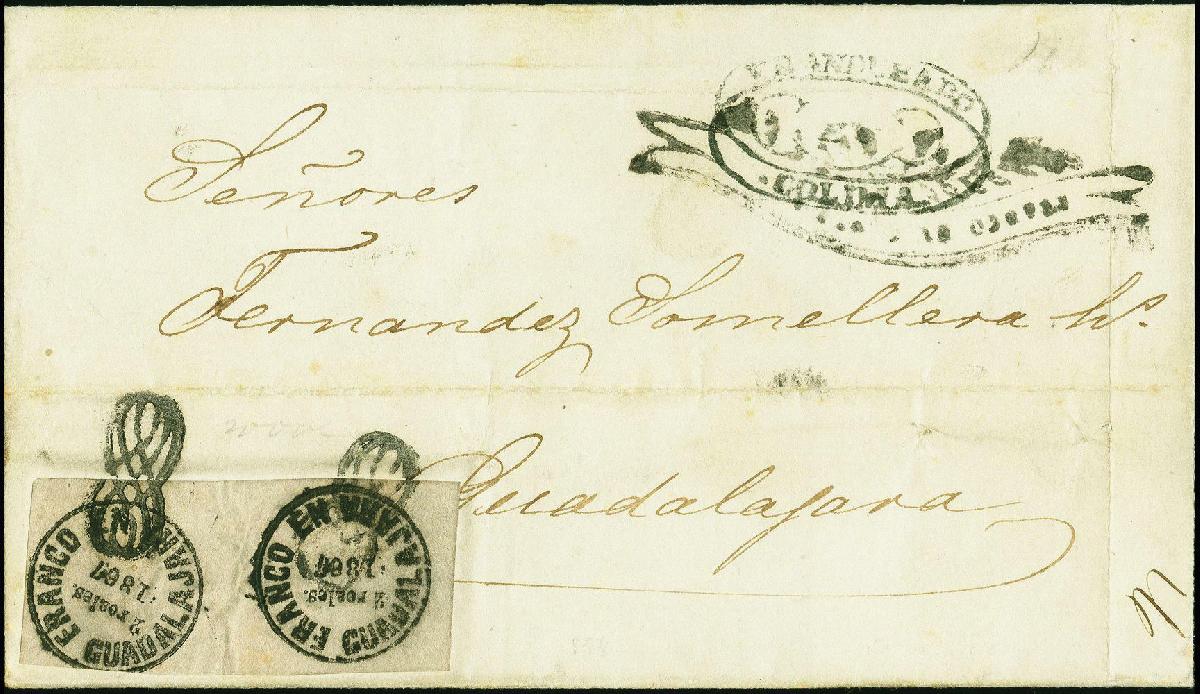 COLIMA
Señores
Fernandez Somellera Hs.
Guadalajara
FRANCO EN GUADALAJARA
2 reales.
1867
FRANCO EN GUADALAJARA
2 reales.
1867